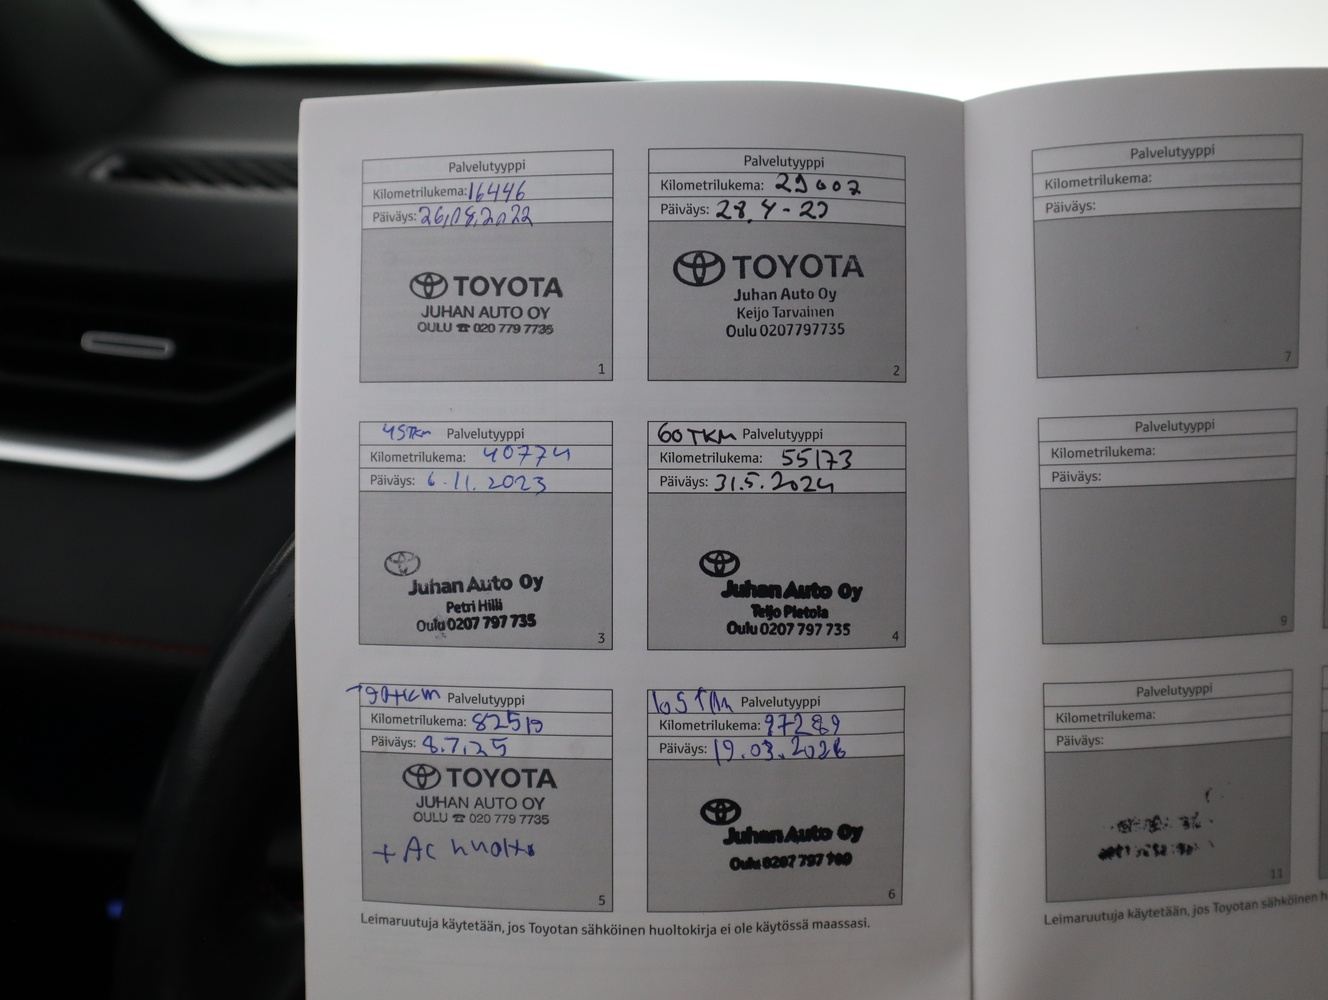 Palvelutyyppi
Kilometrilukema: 16446
Päiväys: 26.08.2022
TOYOTA
JUHAN AUTO OY
OULU ☎ 020 779 7735
1
Palvelutyyppi
Kilometrilukema: 29007
Päiväys: 28.4-23
TOYOTA
Juhan Auto Oy
Keijo Tarvainen
Oulu 0207797735
2
45TKM Palvelutyyppi
Kilometrilukema: 40774
Päiväys: 6.11.2023
Juhan Auto Oy
Petri Hilli
Oulu 0207 797 735
3
60TKM Palvelutyyppi
Kilometrilukema: 55173
Päiväys: 31.5.2024
Juhan Auto Oy
Teijo Pietola
Oulu 0207 797 735
4
90TKM Palvelutyyppi
Kilometrilukema:
Päiväys: 8.7.25
TOYOTA
JUHAN AUTO OY
OULU ☎ 020 779 7735
+ AC huolto
5
105 TKM Palvelutyyppi
Kilometrilukema: 97289
Päiväys: 19.03.2026
Juhan Auto Oy
Oulu 0207 797
6
Leimaruutuja käytetään, jos Toyotan sähköinen huoltokirja ei ole käytössä maassasi.
Palvelutyyppi
Kilometrilukema:
Päiväys:
7
Palvelutyyppi
Kilometrilukema:
Päiväys:
9
Palvelutyyppi
Kilometrilukema:
Päiväys:
11
Leimaruutuja käytetään, jos Toyotan sähköinen